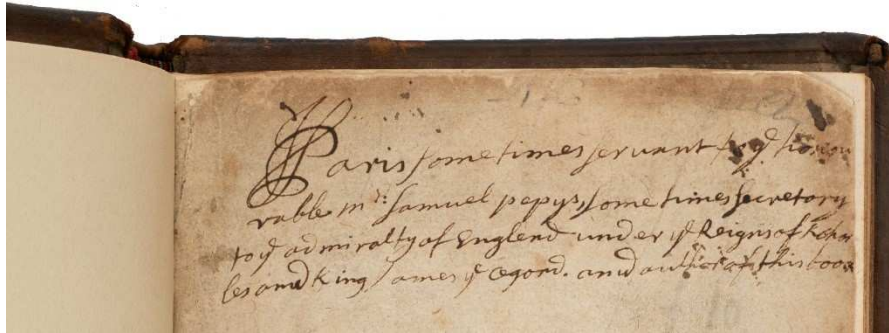 Paris sometimes servant to yᵉ honou
rable mʳ: Samuel pepys, sometimes secretory
to yᵉ admiralty of Englend under yᵉ Reigns of K Char
les and King James yᵉ cegond. and author of this book